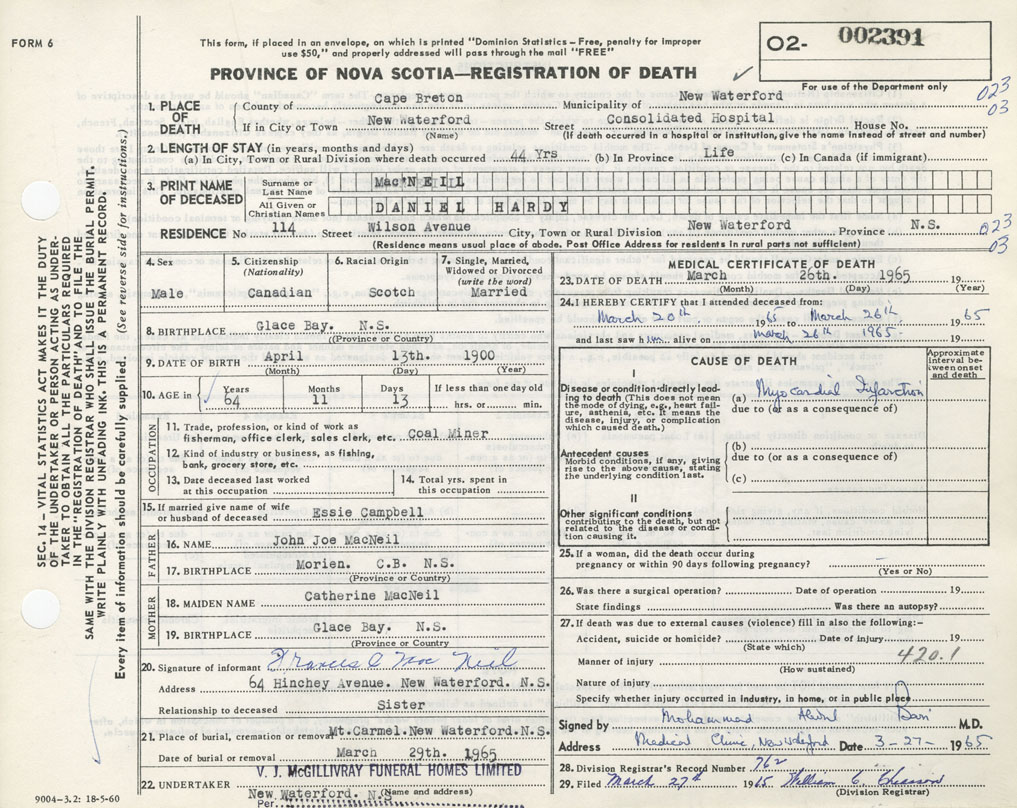 FORM 6
This form, if placed in an envelope, on which is printed "Dominion Statistics – Free, penalty for improper
use $50," and properly addressed will pass through the mail "FREE"
O2- 002391
PROVINCE OF NOVA SCOTIA—REGISTRATION OF DEATH
For use of the Department only
1. PLACE OF DEATH
County of Cape Breton Municipality of New Waterford
023
03
If in City or Town New Waterford Street Consolidated Hospital House No.
(Name) (If death occurred in a hospital or institution, give the name instead of street and number)
2. LENGTH OF STAY (in years, months and days)
(a) In City, Town or Rural Division where death occurred 44 Yrs (b) In Province Life (c) In Canada (if immigrant)
3. PRINT NAME OF DECEASED
Surname or Last Name Mac'NEILL
All Given or Christian Names DANIEL HARDY
RESIDENCE No 114 Wilson Avenue City, Town or Rural Division New Waterford Province N.S.
023
03
(Residence means usual place of abode. Post Office Address for residents in rural parts not sufficient)
4. Sex Male
5. Citizenship (Nationality) Canadian
6. Racial Origin Scotch
7. Single, Married, Widowed or Divorced (write the word) Married
8. BIRTHPLACE Glace Bay. N.S.
(Province or Country)
9. DATE OF BIRTH April 13th. 1900
(Month) (Day) (Year)
10. AGE in Years 64 Months 11 Days 13 If less than one day old hrs. or min.
OCCUPATION
11. Trade, profession, or kind of work as
fisherman, office clerk, sales clerk, etc. Coal Miner
12. Kind of industry or business, as fishing,
bank, grocery store, etc.
13. Date deceased last worked at this occupation
14. Total yrs. spent in this occupation
15. If married give name of wife
or husband of deceased Essie Campbell
FATHER
16. NAME John Joe MacNeil
17. BIRTHPLACE Morien. C.B. N.S.
(Province or Country)
MOTHER
18. MAIDEN NAME Catherine MacNeil
19. BIRTHPLACE Glace Bay. N.S.
(Province or Country)
20. Signature of informant Frances C Mac Neil
Address 64 Hinchey Avenue. New Waterford. N.S.
Relationship to deceased Sister
21. Place of burial, cremation or removal Mt.Carmel.New Waterford.N.S.
Date of burial or removal March 29th. 1965
V. J. McGILLIVRAY FUNERAL HOMES LIMITED
22. UNDERTAKER New Waterford. N.S
(Name and address)
Per
9004-3.2: 18-5-60
MEDICAL CERTIFICATE OF DEATH
23. DATE OF DEATH March 26th. 1965 19
(Month) (Day) (Year)
24. I HEREBY CERTIFY that I attended deceased from:
March 20th 1965 to March 26th 1965
and last saw him alive on March 26th 1965
CAUSE OF DEATH
Approximate interval between onset and death
I
Disease or condition directly leading to death (This does not mean
the mode of dying, e.g., heart failure, asthenia, etc. It means the
disease, injury, or complication which caused death.)
(a) Myocardial Infarction
due to (or as a consequence of)
Antecedent causes
Morbid conditions, if any, giving
rise to the above cause, stating
the underlying condition last.
(b)
due to (or as a consequence of)
(c)
II
Other significant conditions
contributing to the death, but not
related to the disease or condition causing it.
25. If a woman, did the death occur during
pregnancy or within 90 days following pregnancy?
(Yes or No)
26. Was there a surgical operation? Date of operation 19
State findings Was there an autopsy?
27. If death was due to external causes (violence) fill in also the following:–
Accident, suicide or homicide? Date of injury 19
(State which)
Manner of injury 420.1
(How sustained)
Nature of injury
Specify whether injury occurred in industry, in home, or in public place
Signed by Mohammad Abdul Bari M.D.
Address Medical Clinic, New Waterford Date 3-27- 1965
28. Division Registrar's Record Number 762
29. Filed March 27th 1965 William C. Chiasson
(Division Registrar)
SEC. 14 – VITAL STATISTICS ACT MAKES IT THE DUTY
OF THE UNDERTAKER OR PERSON ACTING AS UNDER-
TAKER TO OBTAIN ALL THE PARTICULARS REQUIRED
IN THE "REGISTRATION OF DEATH" AND TO FILE THE
SAME WITH THE DIVISION REGISTRAR WHO SHALL ISSUE THE BURIAL PERMIT.
WRITE PLAINLY WITH UNFADING INK. THIS IS A PERMANENT RECORD.
Every item of information should be carefully supplied. (See reverse side for instructions.)